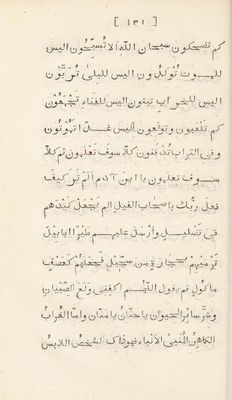 [ ١٣١ ]
كم تضحكون سبحان اللّه الا تُسبّحون اليس
للموت تُولدون اليس للبلى تُربّون
اليس للخراب تبنون اليس للفناء تجمعون
كم تلعبون وتولعون اليس غدًا تموتون
وفي التراب تُدفنون كلا سوف تعلمون ثم كلا
سوف تعلمون يا ابن آدم الم تر كيف
فعل ربُّك باصحاب الفيل الم يجعل كيدهم
في تضليل وارسل عليهم طيرًا ابابيل
ترميهم بحجارة من سجّيل فجعلهم كعصف
ماكول ثم يقول اللّهُمَّ اكفِني ولع الصبيان
وشرّ سائر الحيوان يا حنّان يا منّان وامّا الغراب
الكاهن المنبي الانباء فهو ذاك الشخص اللابس